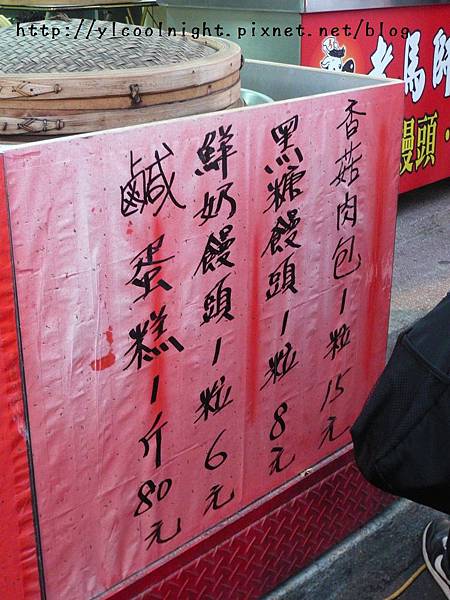 http://ylcoolnight.pixnet.net/blog
香菇肉包一粒15元
黑糖饅頭一粒8元
鮮奶饅頭一粒6元
鹹蛋糕一斤80元
老馬師
饅頭·